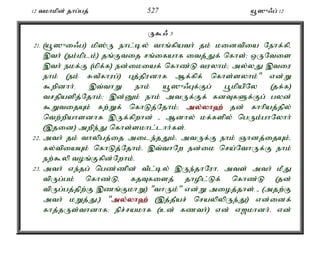 12 வமாமின் தாப்பத் 527 யூஸுஃப் 12
ருகூஃ 3
21. (யூஸுஃபை) மிஸ்ரு நாட்டில் வாங்கியவர் தம் மனைவியை நோக்கி,
இவர் (நம்மிடம்) தங்குவதை சங்கையாக வைத்துக் கொள்; ஒருவேளை
இவர் நமக்கு (மிக்க) நன்மையைக் கொண்டு வரலாம்; அல்லது இவரை
நாம் (நம் சுவீகாரப்) புத்திரனாக ஆக்கிக் கொள்ளலாம்" என்று
கூறினார். இவ்வாறு நாம் யூஸுஃபுக்குப் பூமியிலே (தக்க)
வசதியளித்தோம்; இன்னும் நாம் அவருக்குக் கனவுகளுக்குப் பலன்
கூறுவதையும் கற்றுக் கொடுத்தோம்; அல்லாஹ் தன் காரியத்தில்
வெற்றியாளனாக இருக்கிறான் , ஆனால் மக்களில் பெரும்பாலோர்
(இதனை) அறிந்து கொள்ளமாட்டார்கள்.
22. அவர் தம் வாலிபத்தை அடைந்ததும், அவருக்கு நாம் ஞானத்தையும்,
கல்வியையும் கொடுத்தோம். இவ்வாறே நன்மை செய்வோருக்கு நாம்
நற்கூலி வழங்குகின்றோம்.
23. அவர் எந்தப் பெண்ணின் வீட்டில் இருந்தாரோ, அவள் அவர் மீது
விருப்பம் கொண்டு, கதவுகளைத் தாழிட்டுக் கொண்டு (தன்
விருப்பத்திற்கு இணங்குமாறு) "வாரும்" என்று அழைத்தாள் , (அதற்கு
அவர் மறுத்து,) "அல்லாஹ் (இத்தீயச் செயலிலிருந்து) என்னைக்
காத்தருள்வானாக; நிச்சயமாக (உன் கணவர்) என் எஜமானர், என்